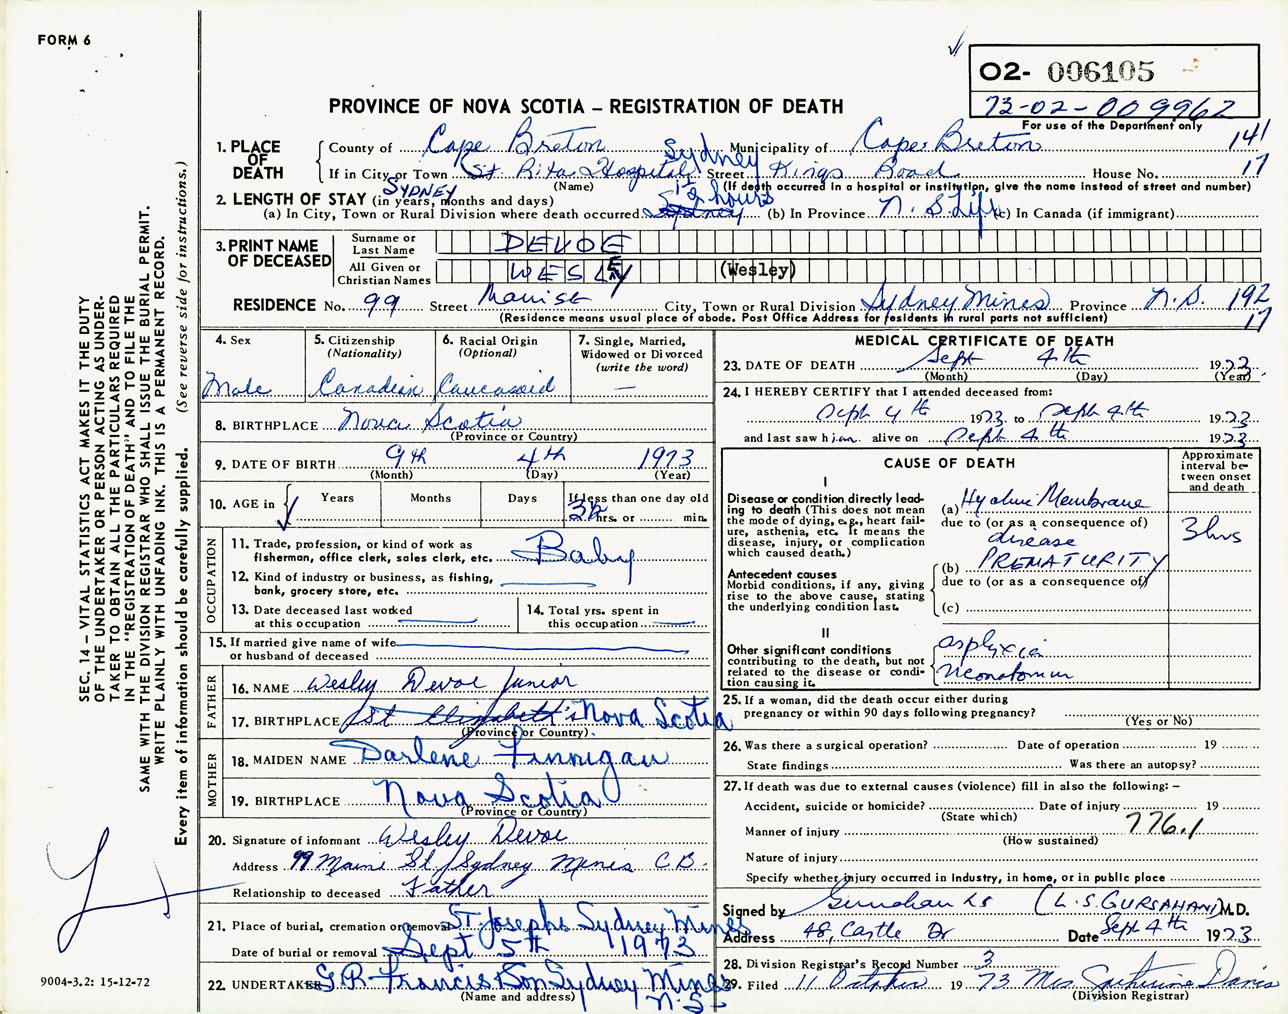 FORM 6
02- 006105
73-02-009962
For use of the Department only
PROVINCE OF NOVA SCOTIA – REGISTRATION OF DEATH
1. PLACE OF DEATH
County of Cape Breton Municipality of Cape Breton 141
If in City or Town Sydney St. Rita Hospital Street Kings Road House No. 17
(Name) (If death occurred in a hospital or institution, give the name instead of street and number)
SYDNEY
2. LENGTH OF STAY (in years, months and days)
(a) In City, Town or Rural Division where death occurred hours (b) In Province N. S. Life (c) In Canada (if immigrant)
3. PRINT NAME OF DECEASED
Surname or Last Name DEVOE
All Given or Christian Names WESLEY (Wesley)
RESIDENCE No. 99 Street City, Town or Rural Division Sydney Mines Province N.S. 192
(Residence means usual place of abode. Post Office Address for residents in rural parts not sufficient) 17
4. Sex
Male
5. Citizenship (Nationality)
Canadian
6. Racial Origin (Optional)
Caucasoid
7. Single, Married, Widowed or Divorced (write the word)
—
8. BIRTHPLACE Nova Scotia
(Province or Country)
9. DATE OF BIRTH 9th 4th 1973
(Month) (Day) (Year)
10. AGE in Years Months Days If less than one day old
hrs. or min.
OCCUPATION
11. Trade, profession, or kind of work as fisherman, office clerk, sales clerk, etc. Baby
12. Kind of industry or business, as fishing, bank, grocery store, etc.
13. Date deceased last worked at this occupation
14. Total yrs. spent in this occupation
15. If married give name of wife or husband of deceased
FATHER
16. NAME Wesley Devoe Junior
17. BIRTHPLACE St Elizabeth's Nova Scotia
(Province or Country)
MOTHER
18. MAIDEN NAME Darlene Finnigan
19. BIRTHPLACE Nova Scotia
(Province or Country)
20. Signature of informant Wesley Devoe
Address 99 Main St. Sydney Mines C.B.
Relationship to deceased Father
21. Place of burial, cremation or removal St Josephs Sydney Mines
Date of burial or removal Sept 5th 1973
22. UNDERTAKER G.R. Francis & Son Sydney Mines
(Name and address) N.S.
MEDICAL CERTIFICATE OF DEATH
23. DATE OF DEATH Sept 4th 1973
(Month) (Day) (Year)
24. I HEREBY CERTIFY that I attended deceased from:
Sept 4th 1973 to Sept 4th 1973
and last saw him alive on Sept 4th 1973
CAUSE OF DEATH
Approximate interval between onset and death
I
Disease or condition directly leading to death (This does not mean the mode of dying, e.g., heart failure, asthenia, etc. It means the disease, injury, or complication which caused death.)
(a) Hyaline Membrane
due to (or as a consequence of)
disease
3 hrs
Antecedent causes
Morbid conditions, if any, giving rise to the above cause, stating the underlying condition last.
(b) PREMATURITY
due to (or as a consequence of)
(c)
II
Other significant conditions
contributing to the death, but not related to the disease or condition causing it.
asphyxia
neonatorum
25. If a woman, did the death occur either during pregnancy or within 90 days following pregnancy?
(Yes or No)
26. Was there a surgical operation? Date of operation 19
State findings Was there an autopsy?
27. If death was due to external causes (violence) fill in also the following: –
Accident, suicide or homicide? Date of injury 19
(State which)
Manner of injury 776.1
(How sustained)
Nature of injury
Specify whether injury occurred in Industry, in home, or in public place
Signed by (L.S. GURSAHANI) M.D.
Address 48, Castle Dr Date Sept 4th 1973
28. Division Registrar's Record Number 3
29. Filed 11 October 1973 Mrs Catherine Davis
(Division Registrar)
SEC. 14 – VITAL STATISTICS ACT MAKES IT THE DUTY
OF THE UNDERTAKER OR PERSON ACTING AS UNDERTAKER TO OBTAIN ALL THE PARTICULARS REQUIRED
IN THE "REGISTRATION OF DEATH" AND TO FILE THE
SAME WITH THE DIVISION REGISTRAR WHO SHALL ISSUE THE BURIAL PERMIT.
WRITE PLAINLY WITH UNFADING INK. THIS IS A PERMANENT RECORD.
Every item of information should be carefully supplied. (See reverse side for instructions.)
9004-3.2: 15-12-72